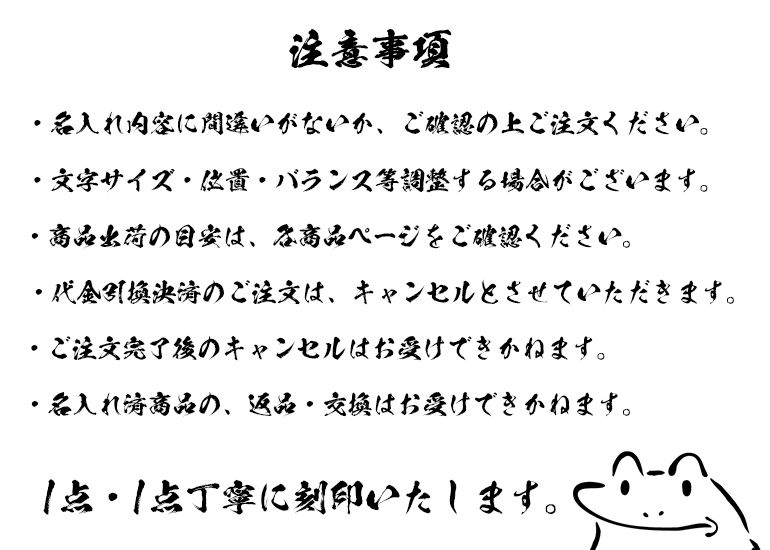 注意事項
・名入れ内容に間違いがないか、ご確認の上ご注文ください。
・文字サイズ・位置・バランス等調整する場合がございます。
・商品出荷の目安は、各商品ページをご確認ください。
・代金引換決済のご注文は、キャンセルとさせていただきます。
・ご注文完了後のキャンセルはお受けできかねます。
・名入れ済商品の、返品・交換はお受けできかねます。
1点・1点丁寧に刻印いたします。